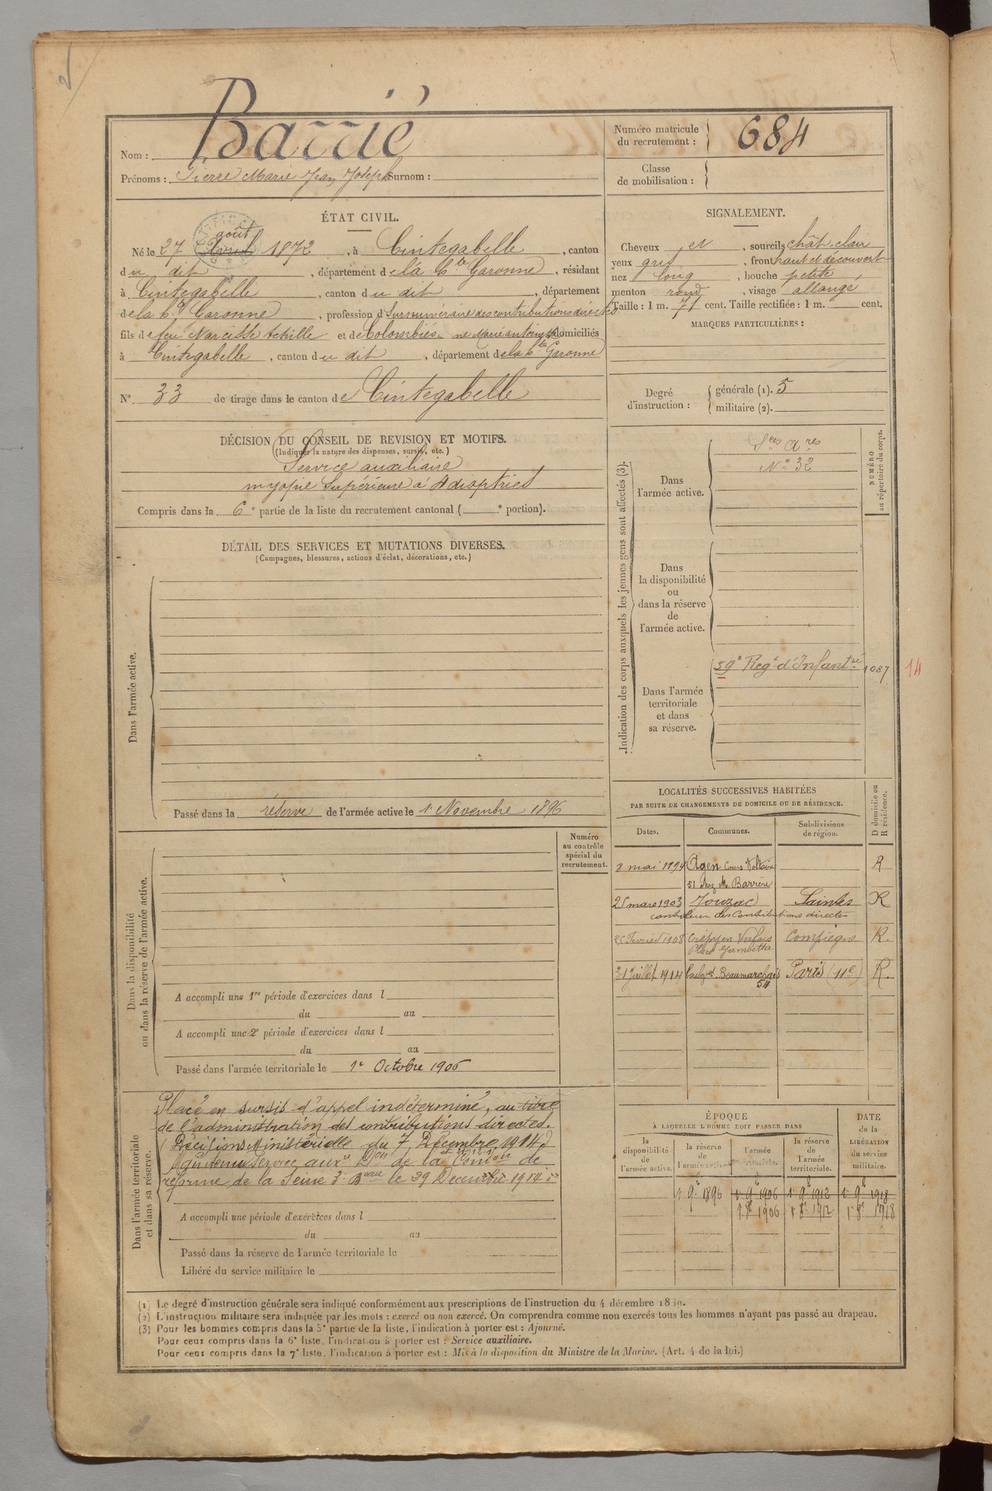 Nom : Barrié
Prénoms : Pierre Marie Jean Joseph Surnom :
Numéro matricule du recrutement : 684
Classe de mobilisation :
ÉTAT CIVIL.
août
Né le 27 Avril 1872, à Cintegabelle, canton
du dit, département de la Hte Garonne, résidant
à Cintegabelle, canton du dit, département
de la Hte Garonne, profession de Surnuméraire des contributions directes
fils de feu Narcisse Achille et de Colombiés Marie domiciliés
à Cintegabelle, canton du dit, département de la Hte Garonne
N° 33 de tirage dans le canton de Cintegabelle
SIGNALEMENT.
Cheveux et, sourcils chât. clair
yeux gris, front haut et découvert
nez long, bouche petite
menton rond, visage allongé
Taille : 1 m. 71 cent. Taille rectifiée : 1 m. cent.
MARQUES PARTICULIÈRES :
Degré d'instruction : générale (1). 5
militaire (2).
DÉCISION DU CONSEIL DE REVISION ET MOTIFS.
(Indiquer la nature des dispenses, sursis, etc.)
Service auxiliaire
myopie supérieure à 4 dioptries
Compris dans la 6e partie de la liste du recrutement cantonal ( e portion).
DÉTAIL DES SERVICES ET MUTATIONS DIVERSES.
(Campagnes, blessures, actions d'éclat, décorations, etc.)
Dans l'armée active.
Passé dans la réserve de l'armée active le 1er Novembre 1896
Indication des corps auxquels les jeunes gens sont affectés (3).
NUMÉRO au répertoire du corps.
Dans l'armée active.
Sces Ares
N° 32
Dans la disponibilité ou dans la réserve de l'armée active.
Dans l'armée territoriale et dans sa réserve.
59e Regt d'Infantrie 1087 14
LOCALITÉS SUCCESSIVES HABITÉES
PAR SUITE DE CHANGEMENTS DE DOMICILE OU DE RÉSIDENCE.
D domicile ou R résidence.
Dates. Communes. Subdivisions de région.
mai 1894 Agen Cours Voltaire R
51 chez M. Barrère
25 mars 1903 Jouzac Saintes R
contrôleur des Contributions directes
Février 1908 Crépy en Valois Compiègne R.
Place Gambetta
31 Juillet 1914 Boulgd Beaumarchais Paris (11e) R.
54
Numéro au contrôle spécial du recrutement.
Dans la disponibilité ou dans la réserve de l'armée active.
A accompli une 1re période d'exercices dans l
du au
A accompli une 2e période d'exercices dans l
du au
Passé dans l'armée territoriale le 1er Octobre 1906
Dans l'armée territoriale et dans sa réserve.
Placé en sursis d'appel indéterminé, au titre
de l'administration des contributions directes.
Décision Ministérielle du 7 Décembre 1914.
Maintenu service auxre Don de la Comon de
réforme de la Seine 3e Bau le 29 Decembre 1914
A accompli une période d'exercices dans l
du au
Passé dans la réserve de l'armée territoriale le
Libéré du service militaire le
ÉPOQUE
À LAQUELLE L'HOMME DOIT PASSER DANS
DATE de la LIBÉRATION du service militaire.
la disponibilité de l'armée active. la réserve de l'armée active. l'armée territoriale. la réserve de l'armée territoriale.
1 9e 1896 1 9e 1906 1 9e 1912 1 9e 1918
1 8e 1906 1 8e 1912 1 8e 1918
(1) Le degré d'instruction générale sera indiqué conformément aux prescriptions de l'instruction du 4 décembre 1889.
(2) L'instruction militaire sera indiquée par les mots : exercé ou non exercé. On comprendra comme non exercés tous les hommes n'ayant pas passé au drapeau.
(3) Pour les hommes compris dans la 5e partie de la liste, l'indication à porter est : Ajourné.
Pour ceux compris dans la 6e liste, l'indication à porter est : Service auxiliaire.
Pour ceux compris dans la 7e liste, l'indication à porter est : Mis à la disposition du Ministre de la Marine. (Art. 4 de la loi.)